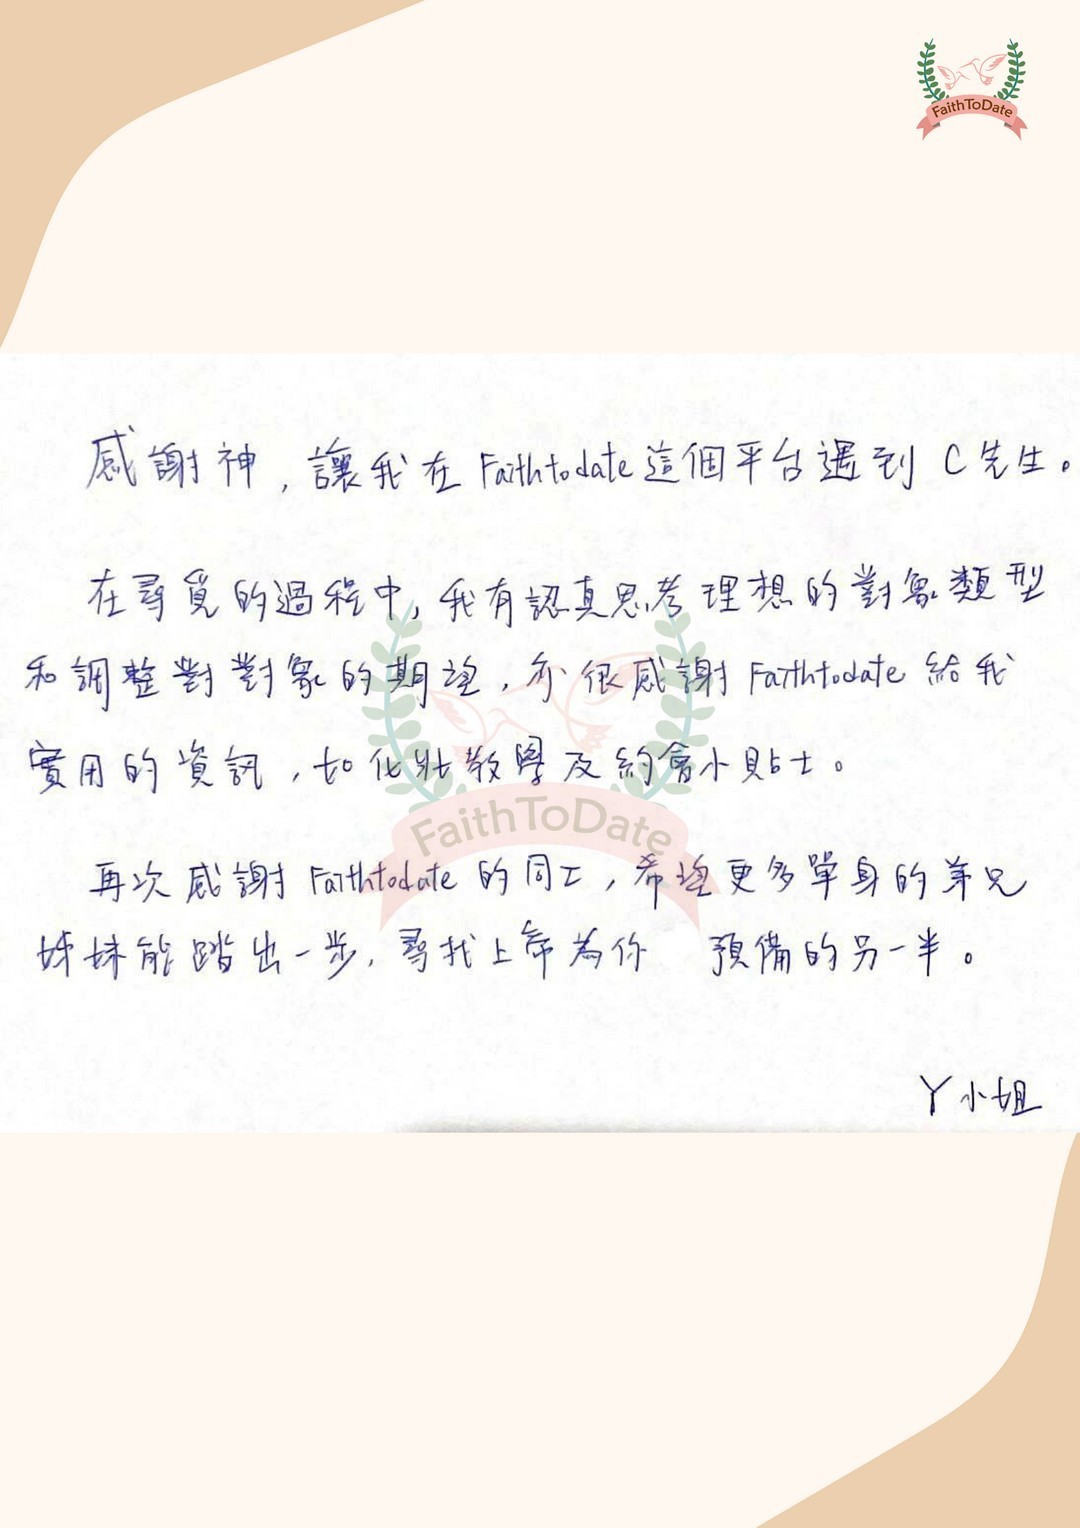 FaithToDate
感謝神，讓我在Faithtodate這個平台遇到C先生。
在尋覓的過程中，我有認真思考理想的對象類型
和調整對對象的期望，亦很感謝Faithtodate給我
實用的資訊，如化妝教學及約會小貼士。
FaithToDate
再次感謝Faithtodate的同工，希望更多單身的弟兄
姊妹能踏出一步，尋找上帝為你 預備的另一半。
Y小姐